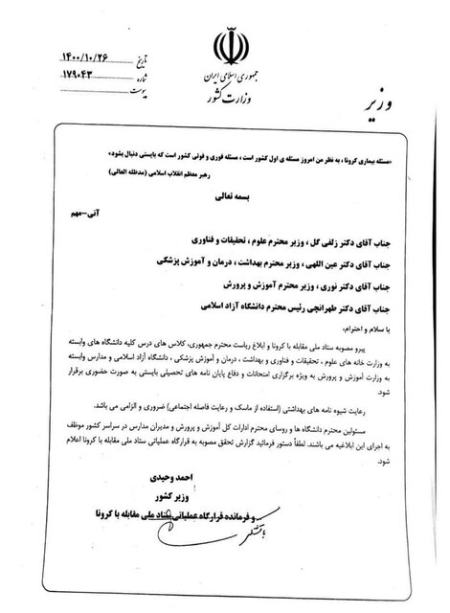 جمهوری اسلامی ایران
وزارت کشور
وزیر
تاریخ ۱۴۰۰/۱۰/۲۶
شماره ۱۷۹۰۴۳
پیوست
«مسئله بیماری کرونا، به نظر من امروز مسئله ی اول کشور است، مسئله فوری و فوتی کشور است که بایستی دنبال بشود»
رهبر معظم انقلاب اسلامی (مدظله العالی)
بسمه تعالی
آنی-مهم
جناب آقای دکتر زلفی گل، وزیر محترم علوم، تحقیقات و فناوری
جناب آقای دکتر عین اللهی، وزیر محترم بهداشت، درمان و آموزش پزشکی
جناب آقای دکتر نوری، وزیر محترم آموزش و پرورش
جناب آقای دکتر طهرانچی رئیس محترم دانشگاه آزاد اسلامی
با سلام و احترام،
پیرو مصوبه ستاد ملی مقابله با کرونا و ابلاغ ریاست محترم جمهوری، کلاس های درس کلیه دانشگاه های وابسته
به وزارت خانه های علوم، تحقیقات و فناوری و بهداشت، درمان و آموزش پزشکی، دانشگاه آزاد اسلامی و مدارس وابسته
به وزارت آموزش و پرورش به ویژه برگزاری امتحانات و دفاع پایان نامه های تحصیلی بایستی به صورت حضوری برقرار
شود.
رعایت شیوه نامه های بهداشتی (استفاده از ماسک و رعایت فاصله اجتماعی) ضروری و الزامی می باشد.
مسئولین محترم دانشگاه ها و روسای محترم ادارات کل آموزش و پرورش و مدیران مدارس در سراسر کشور موظف
به اجرای این ابلاغیه می باشند. لطفاً دستور فرمائید گزارش تحقق مصوبه به قرارگاه عملیاتی ستاد ملی مقابله با کرونا اعلام
شود.
احمد وحیدی
وزیر کشور
و فرمانده قرارگاه عملیاتی ستاد ملی مقابله با کرونا